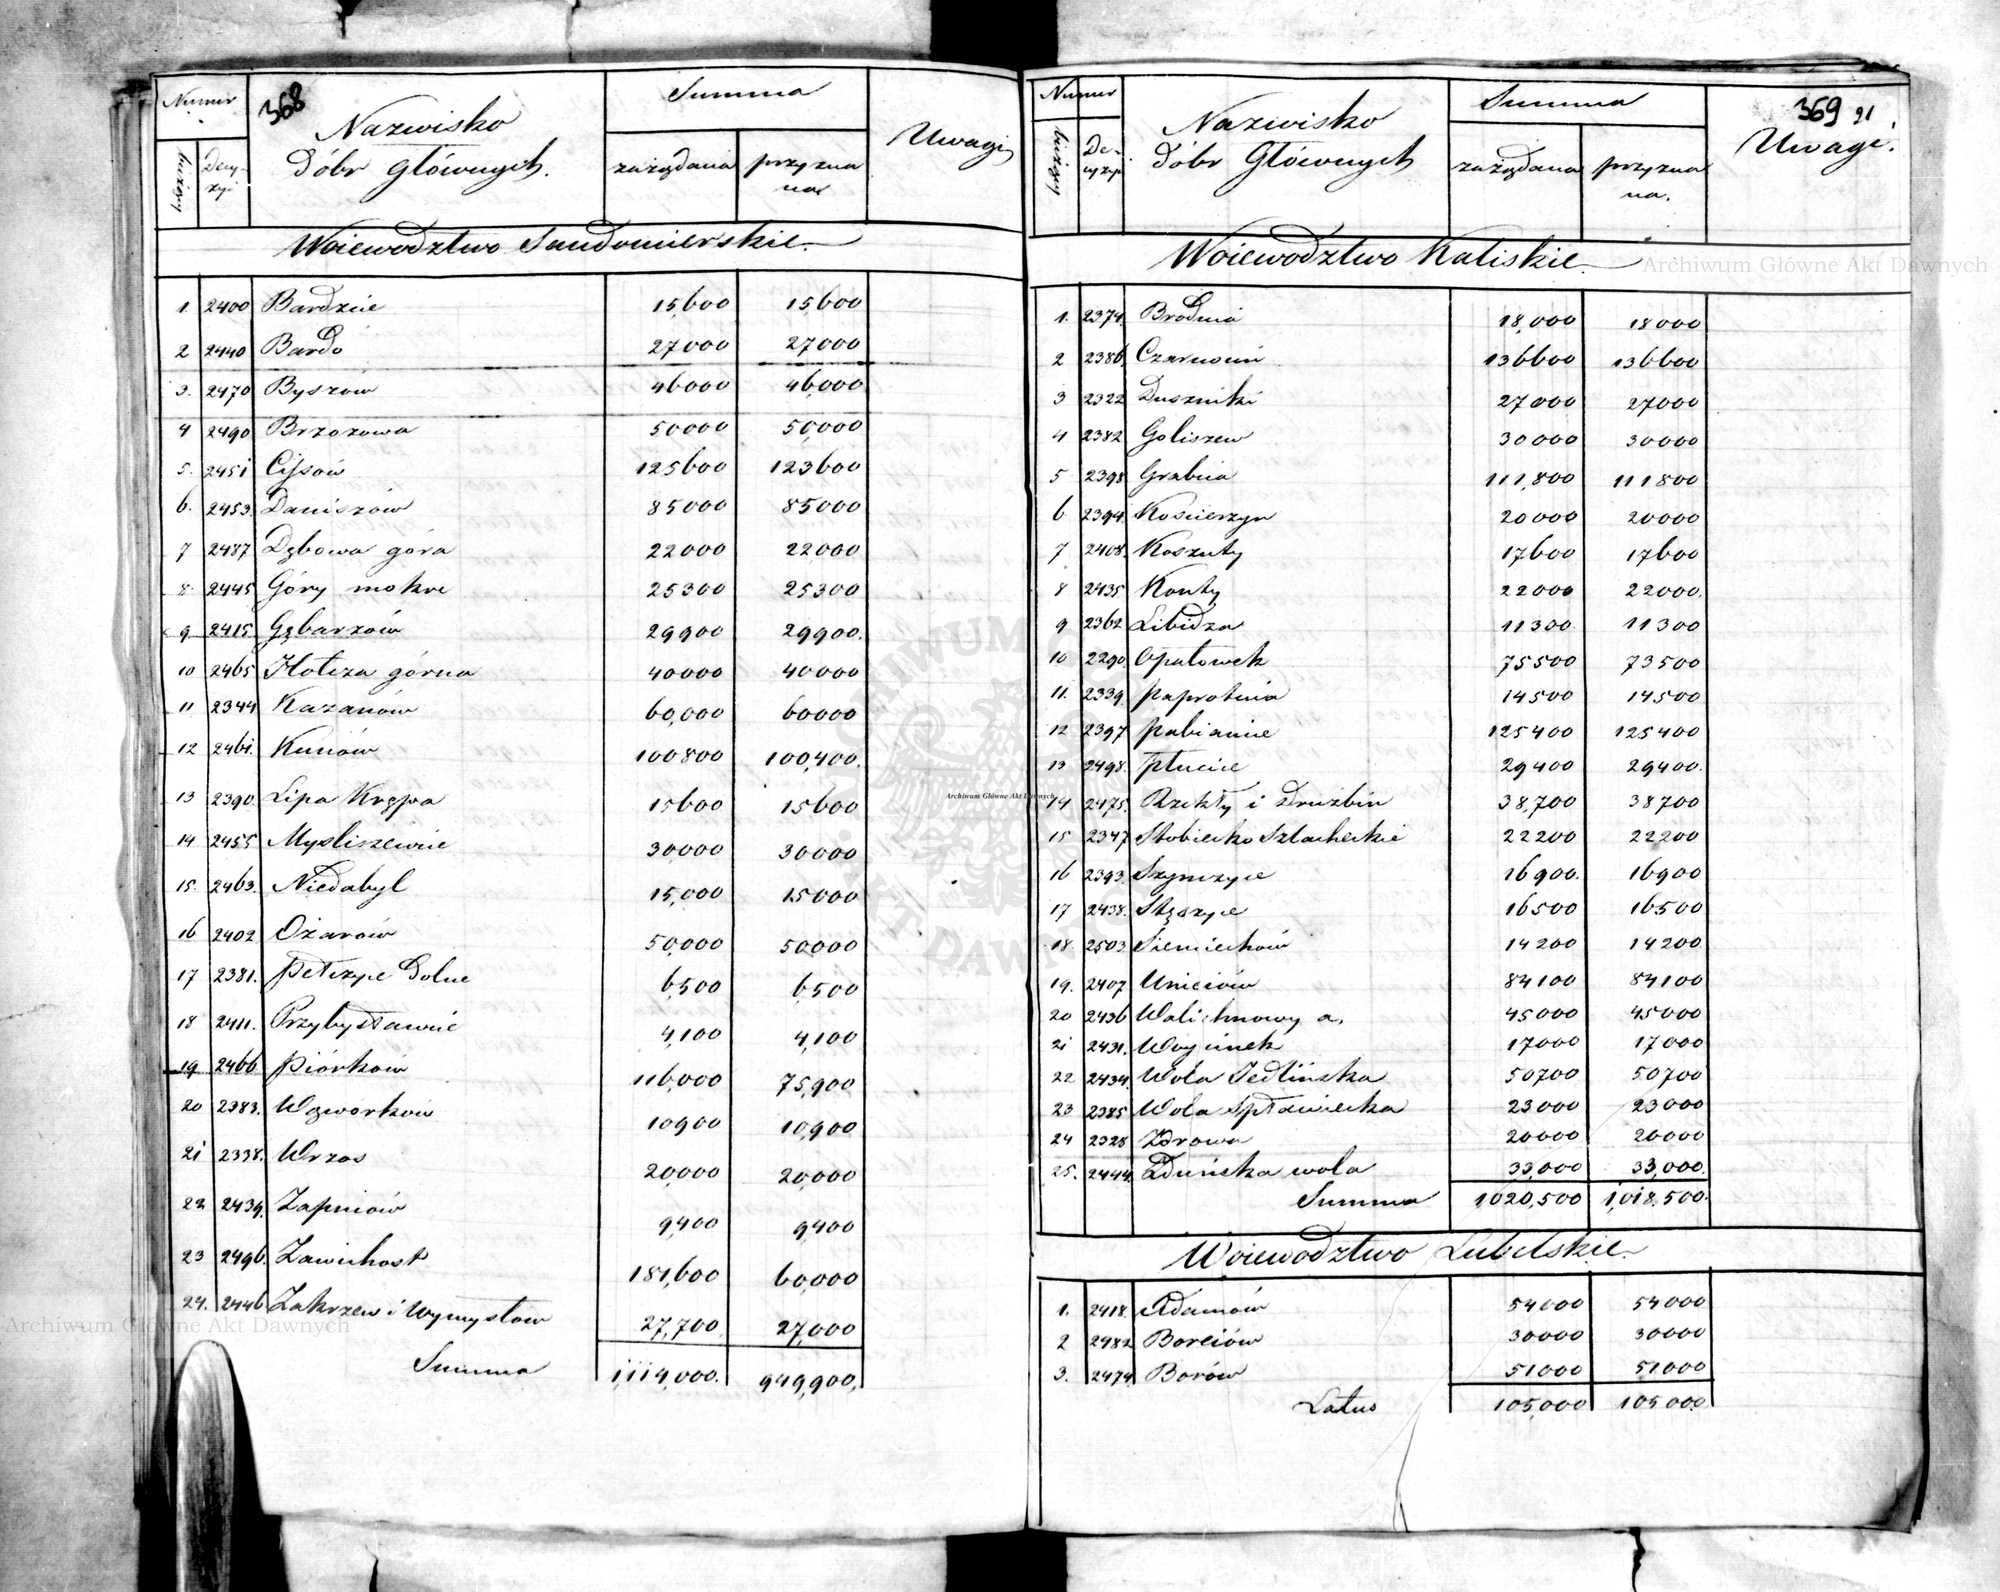 368
Numer
bieżący
Decy-
zyi
Nazwisko
Dóbr Głównych.
Summa
zażądana
przyzna
na
Uwagi
Województwo Sandomierskie.
1. 2400 Bardzice 15,600 15,600
2 2440 Bardo 27000 27000
3. 2470 Byszów 46000 46,000
4 2490 Brzozowa 50000 50,000
5. 2451 Cissów 125600 123600
6. 2453 Daniszów 85000 85000
7 2487 Dębowa góra 22000 22,000
8. 2445 Góry mokre 25300 25300
9 2415 Gębarzów 29900 29900.
10 2465 Hołcza górna 40000 40000
11 2344 Kazanów 60,000 60000
12 2461. Kunów 100800 100,400.
13 2390 Lipa Krępa 15600 15600
14 2455 Mysliszewice 30000 30000
15. 2463. Niedabyl 15,000 15000
16 2402 Ożarów 50,000 50000
17 2381. Pełczyce Dolne 6,500 6,500
18 2411. Przybysławice 4,100 4,100
19 2466 Piórków 116,000 75,900
20 2383. Wąworków 10900 10,900
21 2338. Wrzos 20,000 20,000
22 2439. Zapniów 9400 9400
23 2496 Zawichost 181,600 60,000
24. 2446 Zakrzew i Wymysłow 27,700 27,000
Summa 1,114,000. 949,900.
369 91
Numer
bieżący
De-
cyzyi
Nazwisko
Dóbr Głównych
Summa
zażądana
przyzna
na.
Uwagi.
Województwo Kaliskie
1. 2374. Brodnia 18,000 18000
2 2386. Czarnocin 136600 136600
3 2322 Duszniki 27000 27000
4 2382 Goliszew 30000 30000
5 2398 Grabica 111,800 111800
6 2394. Kościerzyn 20000 20000
7 2408. Koszuty 17600 17600
8 2435 Konty 22000 22000.
9 2362 Libidza 11300 11300
10 2290. Opatowek 75500 73500
11. 2339. Paprotnia 14500 14500
12 2397 Pabianice 125400 125400
13 2498. Tłucice 29400 29400.
14 2475. Rzekły i Drużbin 38,700 38700
15 2347 Stobiecko Szlacheckie 22200 22200
16 2393. Szynczyce 16900. 16900
17 2438. Stęszyce 16500 16500
18 2503 Siemiechów 14200 14200
19. 2407 Unieiów 84100 84100
20 2436 Walichnowy a. 45000 45000
21 2431. Woycinek 17000 17000
22 2434. Wola Jedlińska 50700 50700
23 2385 Wola Spławiecka 23000 23000
24 2328 Zdrowa 20000 20000
25. 2444. Zduńska wola 33,000 33,000.
Summa 1020,500 1,018.500.
Województwo Lubelskie
1. 2418. Adamów 54000 54000
2 2482 Boreiów 30000 30000
3. 2474. Borów 51000 51000
Latus 105,000 105000.
Archiwum Główne Akt Dawnych
Archiwum Główne Akt Dawnych
Archiwum Główne Akt Dawnych